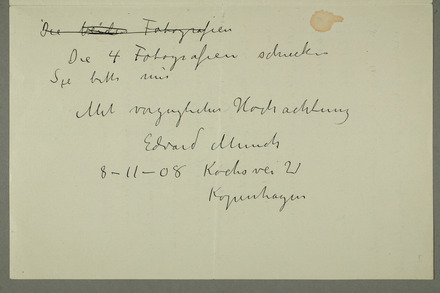 Die beiden Fotografien
Die 4 Fotografien schicken
Sie bitte mir
Mit vorzüglicher Hochachtung
Edvard Munch
8-11-08 Kochsvei 21
Kopenhagen